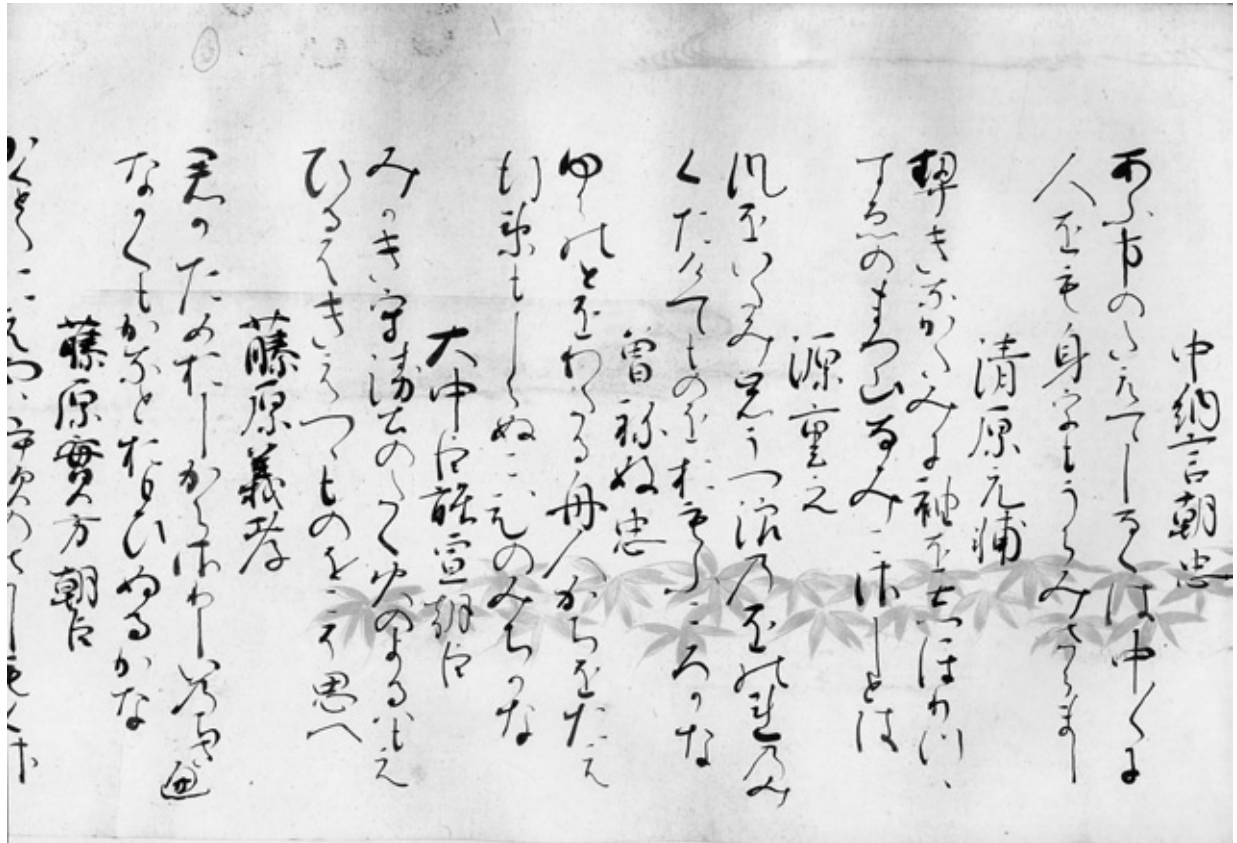 中納言朝忠
あふ事のたえてしなくは中〱に
人をも身をもうらみさらまし
清原元輔
契きなかたみに袖をしほりつゝ
すゑのまつ山なみこさしとは
源重之
風をいたみ岩うつ浪のをのれのみ
くたけてものをおもふころかな
曽祢好忠
ゆらのとをわたる舟人かちをたえ
行衛もしらぬこひのみちかな
大中臣能宣朝臣
みかきもり衛士のたく火のよるはもえ
ひるはきえつゝものをこそ思へ
藤原義孝
君かためおしからさりしいのちさへ
なかくもかなとおもひぬるかな
藤原實方朝臣
かくとたにえやはいふきのさしも草